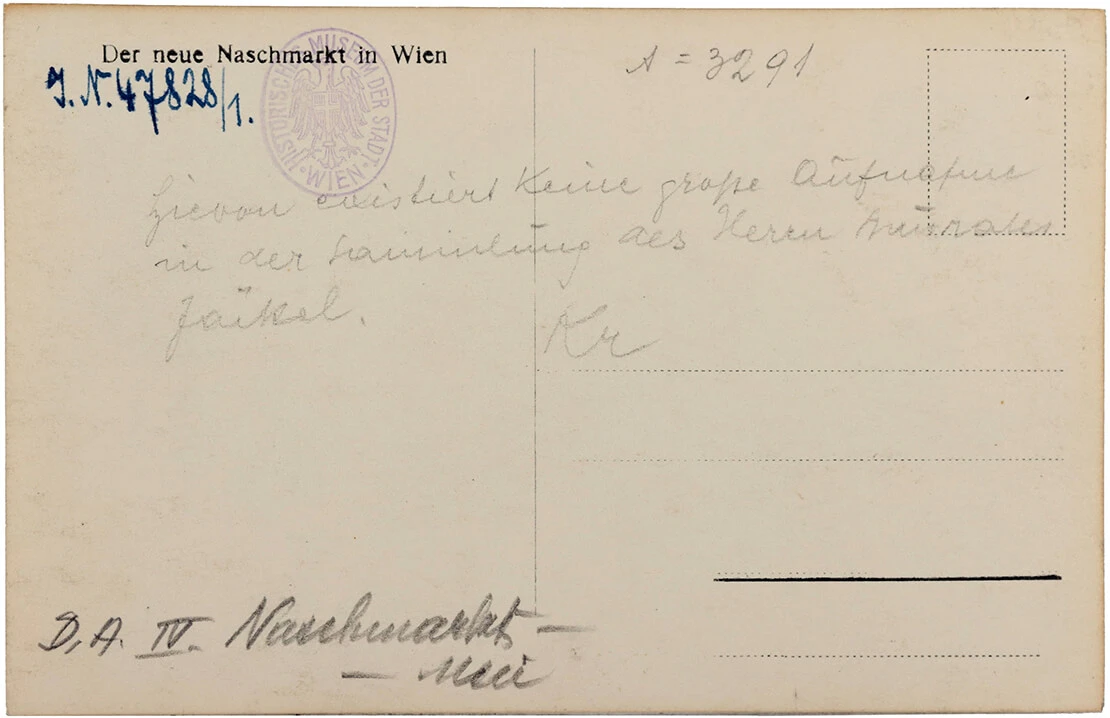 Der neue Naschmarkt in Wien
J.N. 47828/1.
HISTORISCHES MUSEUM DER STADT WIEN
A = 3291
hievon existiert keine große Aufnahme
in der Sammlung des Herrn Amtsrates
Jäkel.
Kr
D.A. IV. Naschmarkt –
– Neu